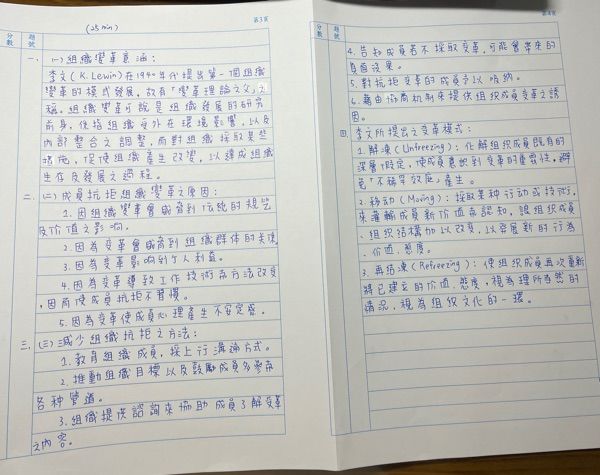 第3頁
(25 min)
題號
分數
一、(一)組織變革意涵:
李文(K. Lewin)在1940年代提出第一個組織
變革的模式發展,故有「變革理論之父」之
稱。組織變革可說是組織發展的研究
前身,係指組織受外在環境影響,以及
內部整合之調整,而對組織採取某些
措施,促使組織產生改變,以達成組織
生存及發展之過程。
二、(二)成員抗拒組織變革之原因:
1. 因組織變革會威脅到傳統的規範
及價值之影响。
2. 因為變革會威脅到組織群体的关係
3. 因為变革影响到个人利益。
4. 因為变革導致工作技術与方法改変
,因而使成員抗拒不習慣。
5. 因為变革使成員心理產生不安定感。
三、(三)減少組織抗拒之方法:
1. 教育組織成員,採上行溝通方式。
2. 推動組織目標以及鼓勵成員多參与
各种管道。
3. 組織提供諮詢來協助成員了解变革
之內容。
第4頁
題號
分數
4. 告知成員若不採取变革,可能會帶來的
負面後果。
5. 對抗拒变革的成員予以吸納。
6. 藉由協商机制來提供組织成員变革之誘
因。
四、李文所提出之变革模式:
1. 解凍(Unfreezing):化解組織成員既有的
深層假設,使成員意識到变革的重要性,避
免「不稱罕效應」產生。
2. 移動(Moving):採取某种行动或技術,
來灌輸成員新价值与認知,讓組织成員
、組织結構加以改变,以發展新的行為
、价值、態度。
3. 再結凍(Refreezing):使組织成員再次重新
將已建立的价值、態度,視為理所當然的
情況,視為組织文化的一環。